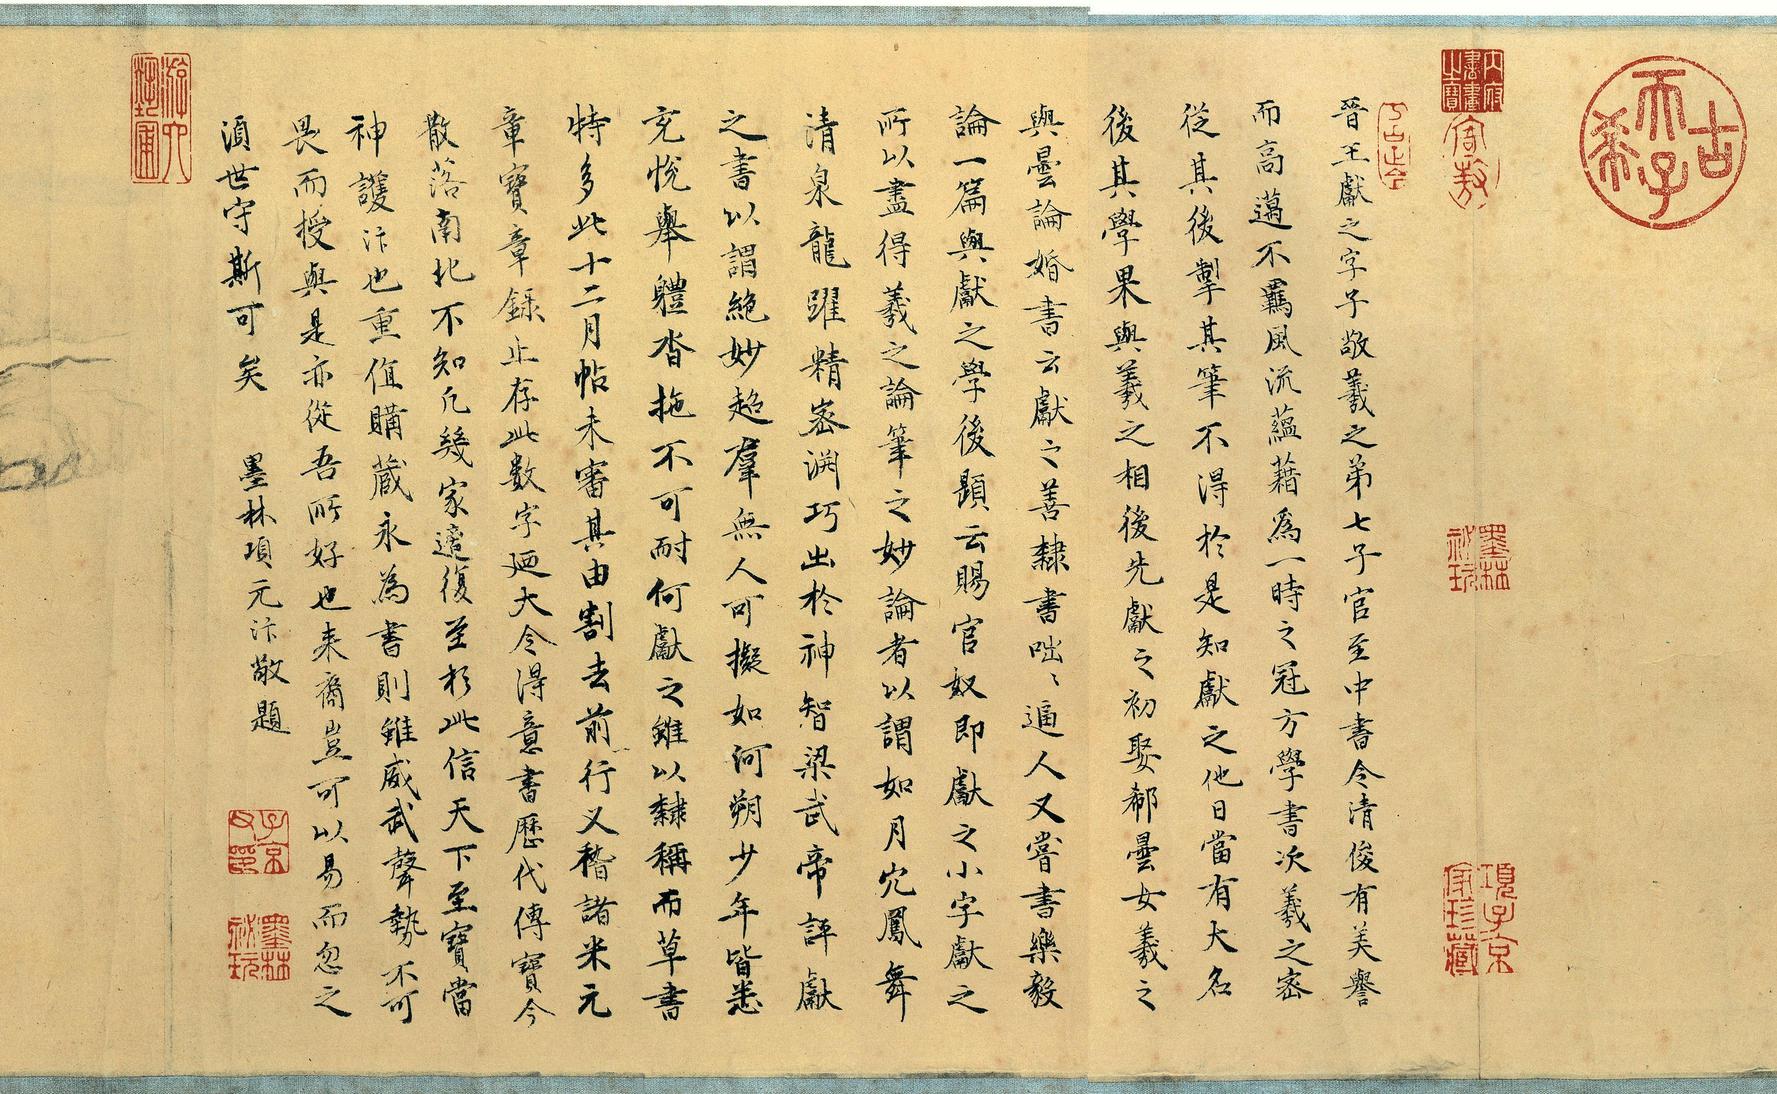 古
希
天
子
晉王獻之字子敬羲之弟七子官至中書令清俊有美譽
而高邁不羈風流蘊藉為一時之冠方學書次羲之密
從其後掣其筆不得於是知獻之他日當有大名
後其學果與羲之相後先獻之初娶郗曇女羲之
與曇論婚書云獻之善隸書咄〻逼人又嘗書樂毅
論一篇與獻之學後題云賜官奴即獻之小字獻之
所以盡得羲之論筆之妙論者以謂如月穴鳳舞
清泉龍躍精密淵巧出於神智梁武帝評獻
之書以謂絕妙超羣無人可擬如河朔少年皆悉
充悅舉體沓拖不可耐何獻之雖以隸稱而草書
特多此十二月帖未審其由割去前行又稽諸米元
章寶章錄止存此数字廼大令得意書歷代傳寶今
散落南北不知凡幾家邅復至於此信天下至寶當
神護汴也重值購藏永為書則雖威武聲勢不可
畏而授與是亦從吾所好也来裔豈可以易而忽之
須世守斯可矣 墨林項元汴敬題
墨林
秘玩
項子京
家珍藏
子京
父印
墨林
秘玩